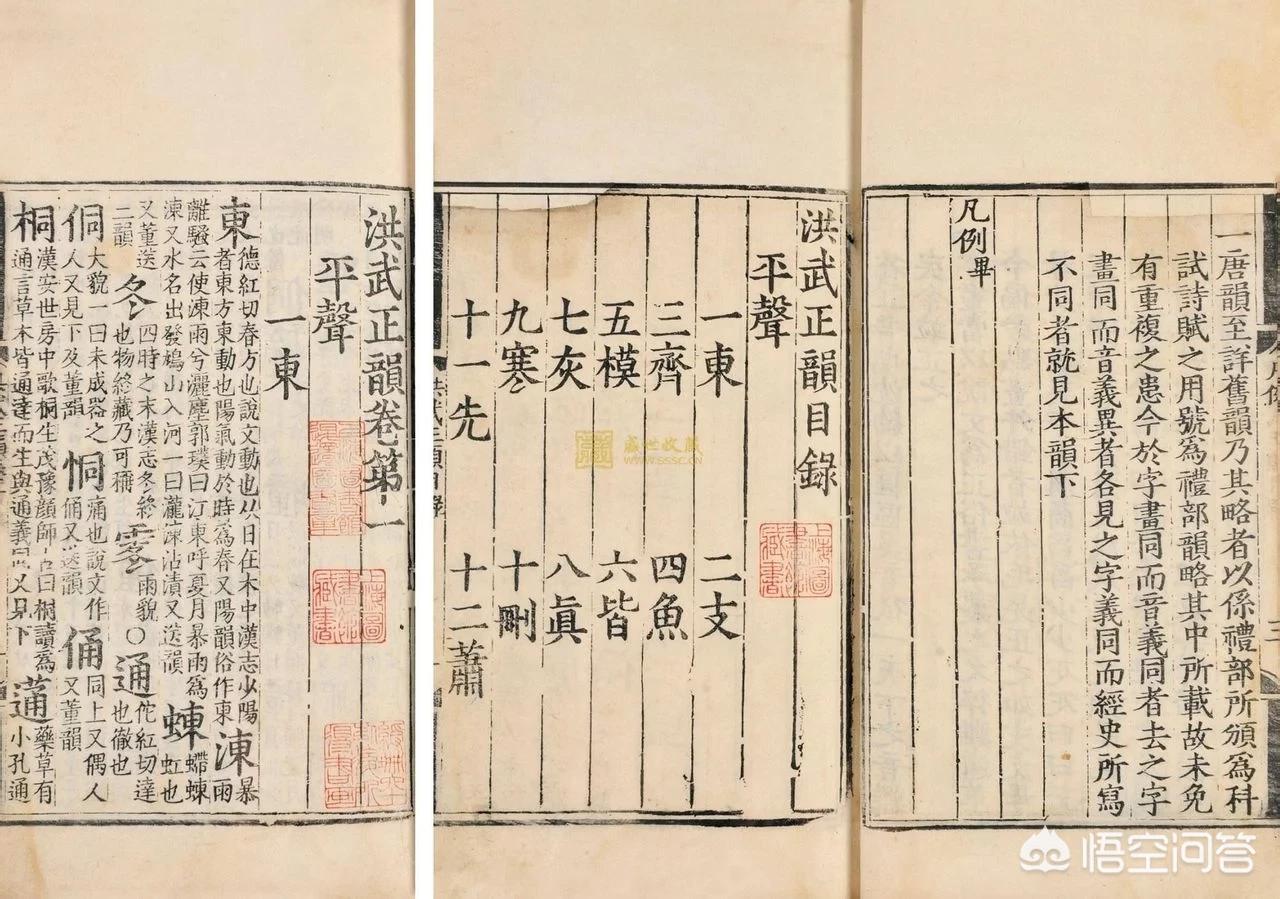 一唐韻至詳舊韻乃其略者以係禮部所頒爲科
試詩賦之用號爲禮部韻略其中所載故未免
有重複之患今於字畫同而音義同者去之字
畫同而音義異者各見之字義同而經史所寫
不同者就見本韻下
凡例畢
洪武正韻目錄
平聲
一東 二支
三齊 四魚
五模 六皆
七灰 八眞
九寒 十刪
十一先 十二蕭
盛世收藏
www.sssc.cn
洪武正韻卷第一
平聲
一東
東 德紅切春方也說文動也从日在木中漢志少陽
者東方東動也陽氣動於時爲春又陽韻俗作東 涷 暴雨
離騷云使涷雨兮灑塵郭璞曰江東呼夏月暴雨爲
涷又水名出發鳩山入河一曰瀧涷沾漬又送韻 蝀 螮蝀虹也
又董送二韻 冬 四時之末漢志冬終也物終藏乃可稱 零 雨貌○ 通 佗紅切達也徹也
侗 大貌一曰未成器之人又見下及董韻 恫 痛也說文作 俑又送韻 俑 同上又偶人又董韻
桐 漢安世房中歌桐生茂豫顏師古曰桐讀爲
通言草木皆通達而生與通義同又見下 蓪 藥草有小孔通
悟空问答